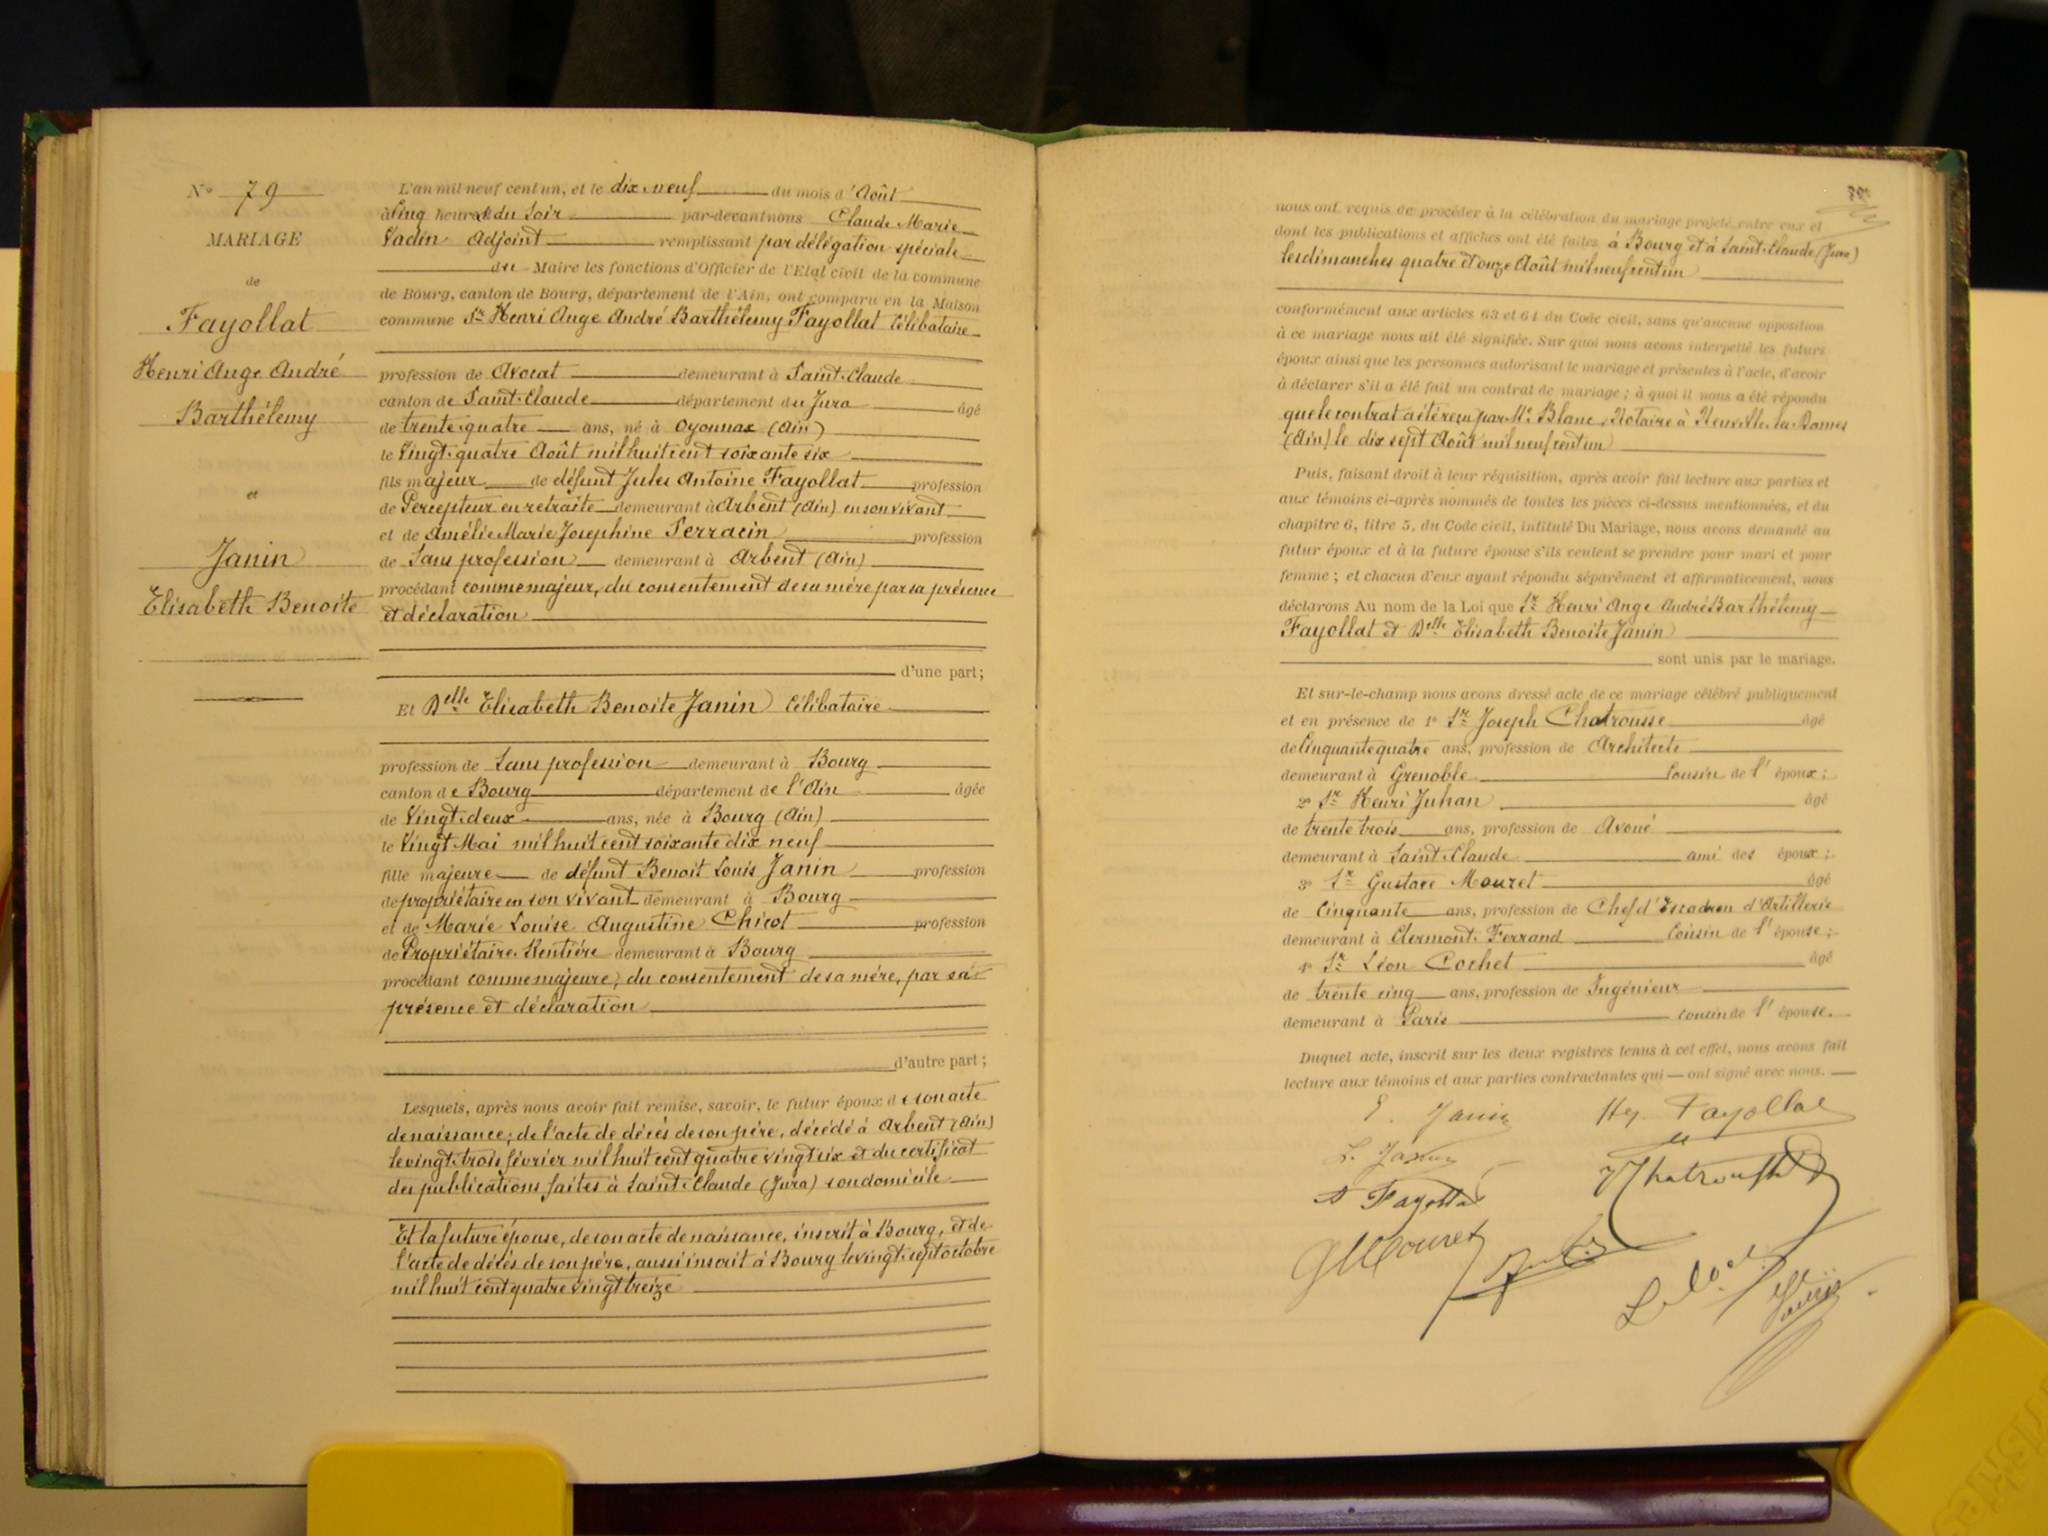 N° 79
MARIAGE
de
Fayollat
Henri Ange André
Barthélemy
et
Janin
Elisabeth Benoite
L'an mil neuf cent un, et le dix neuf du mois d'Août
à Cinq heures du Soir par-devant nous Claude Marie
Vadin Adjoint remplissant par délégation spéciale
du Maire les fonctions d'Officier de l'Etat civil de la commune
de Bourg, canton de Bourg, département de l'Ain, ont comparu en la Maison
commune Sr Henri Ange André Barthélemy Fayollat Célibataire
profession de Avocat demeurant à Saint-Claude
canton de Saint-Claude département du Jura âgé
de trente-quatre ans, né à Oyonnax (Ain)
le Vingt-quatre Août mil huit cent soixante six
fils majeur de défunt Jules Antoine Fayollat profession
de Percepteur en retraite demeurant à Arbent (Ain) en son vivant
et de Amélie Marie Josephine Perracin profession
de Sans profession demeurant à Arbent (Ain)
procédant comme majeur, du consentement de sa mère par sa présence
et déclaration
d'une part;
Et Delle Elisabeth Benoite Janin Célibataire
profession de Sans profession demeurant à Bourg
canton de Bourg département de l'Ain âgée
de Vingt-deux ans, née à Bourg (Ain)
le Vingt Mai mil huit cent soixante dix neuf
fille majeure de défunt Benoit Louis Janin profession
de propriétaire en son vivant demeurant à Bourg
et de Marie Louise Augustine Chicot profession
de Propriétaire Rentière demeurant à Bourg
procédant comme majeure, du consentement de sa mère, par sa
présence et déclaration
d'autre part;
Lesquels, après nous avoir fait remise, savoir, le futur époux de son acte
de naissance; de l'acte de décès de son père, décédé à Arbent (Ain)
le vingt-trois février mil huit cent quatre vingt six et du certificat
des publications faites à Saint-Claude (Jura) son domicile
Et la future épouse, de son acte de naissance, inscrit à Bourg, et de
l'acte de décès de son père, aussi inscrit à Bourg le vingt-sept octobre
mil huit cent quatre vingt treize
nous ont requis de procéder à la célébration du mariage projeté entre eux et
dont les publications et affiches ont été faites à Bourg et à Saint-Claude (Jura)
les dimanches quatre et onze Août mil neuf cent un
conformément aux articles 63 et 64 du Code civil, sans qu'aucune opposition
à ce mariage nous ait été signifiée. Sur quoi nous avons interpellé les futurs
époux ainsi que les personnes autorisant le mariage et présentes à l'acte, d'avoir
à déclarer s'il a été fait un contrat de mariage; à quoi il nous a été répondu
que le contrat a été reçu par Me Blanc, Notaire à Neuville-les-Dames
(Ain) le dix sept Août mil neuf cent un
Puis, faisant droit à leur réquisition, après avoir fait lecture aux parties et
aux témoins ci-après nommés de toutes les pièces ci-dessus mentionnées, et du
chapitre 6, titre 5, du Code civil, intitulé Du Mariage, nous avons demandé au
futur époux et à la future épouse s'ils veulent se prendre pour mari et pour
femme; et chacun d'eux ayant répondu séparément et affirmativement, nous
déclarons Au nom de la Loi que Sr Henri Ange André Barthélemy
Fayollat et Delle Elisabeth Benoite Janin
sont unis par le mariage.
Et sur-le-champ nous avons dressé acte de ce mariage célébré publiquement
et en présence de 1° Sr Joseph Chatrousse âgé
de Cinquante quatre ans, profession de Architecte
demeurant à Grenoble Cousin de l'époux;
2° Sr Henri Juhan âgé
de trente trois ans, profession de Avoué
demeurant à Saint-Claude ami des époux;
3° Sr Gustave Mouret âgé
de Cinquante ans, profession de Chef d'Escadron d'Artillerie
demeurant à Clermont-Ferrand Cousin de l'épouse;
4° Sr Léon Cochet âgé
de trente cinq ans, profession de Ingénieur
demeurant à Paris cousin de l'épouse.
Duquel acte, inscrit sur les deux registres tenus à cet effet, nous avons fait
lecture aux témoins et aux parties contractantes qui ont signé avec nous.
E. Janin Hy Fayollat
L. Janin
A Fayollat
G Mouret